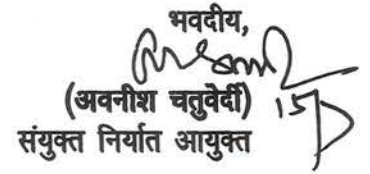 भवदीय,
(अवनीश चतुर्वेदी)
संयुक्त निर्यात आयुक्त